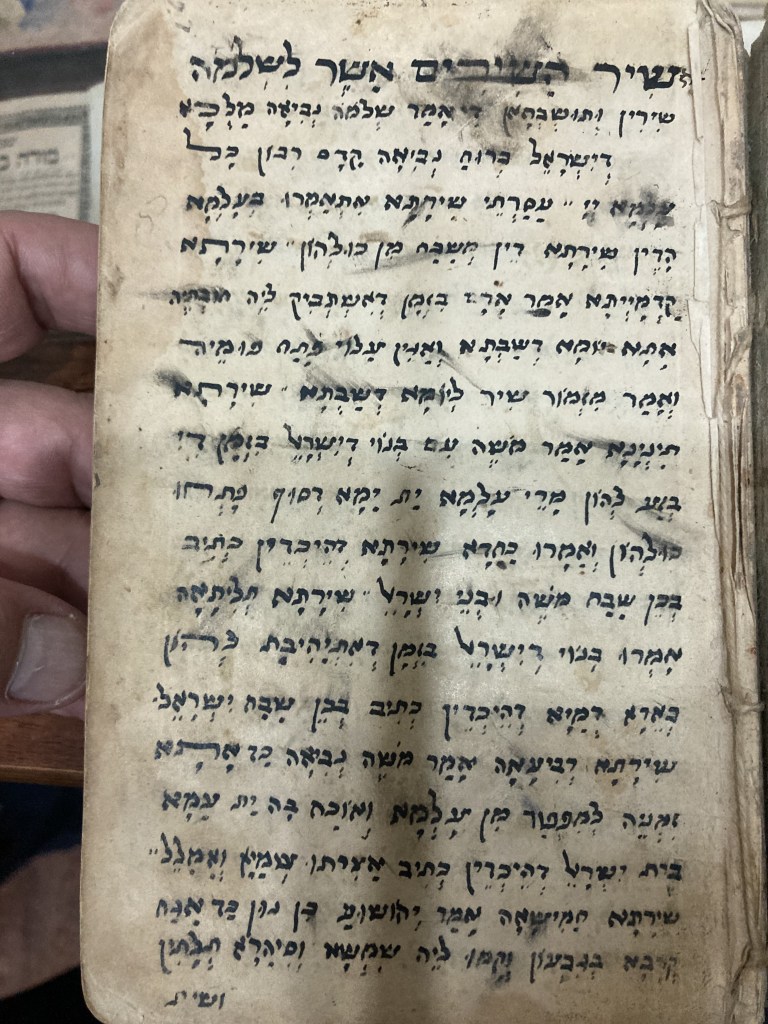 שיר השירים אֲשֶׁר לִשְׁלֹמֹה
שירין ותושבחן די אֲמַר שלמה נְבִיאָה מַלְכָּא
דְיִשְׂרָאֵל בְּרוּחַ נְבִיאָה קֳדָם רִבּוֹן כָּל
עָלְמָא יְיָ עַסַרְתֵּי שִׁירָתָא אִתְאַמְרוּ בְּעָלְמָא
הָדֵין שִׁירָתָא דֵין מְשַׁבַּח מִן כּוּלְהוֹן שִׁירָתָא
קַדְמָיֵיתָא אֲמַר אָדָם בִּזְמַן דְאִשְׁתְּבִיק לֵיהּ חובתיה
אֲתָא יומָא דְשַׁבְּתָא וְאַגֵּין עֲלוֹי פְּתַח פּוּמֵיהּ
וַאֲמַר מִזְמוֹר שִׁיר לְיוֹמָא דְשַׁבְּתָא שִׁירָתָא
תִּנְיָנָא אֲמַר מֹשֶׁה עִם בְּנוֹי דְיִשְׂרָאֵל בִּזְמַן דִי
בְּזַע לְהוֹן מָרֵי עָלְמָא יַת יַמָא דְסוּף פְּתָחוּ
כּוּלְהוֹן וַאֲמָרוּ כַּחֲדָא שִׁירָתָא דְהֵיכְדֵין כְּתִיב
בְּכֵן שַׁבַּח מֹשֶׁה וּבְנֵי יִשְׂרָאֵל שִׁירָתָא תְּלִיתָאָה
אֲמָרוּ בְּנוֹי דְיִשְׂרָאֵל בִּזְמַן דְאִתְיְהִיבַת לְהוֹן
בְּאֵרָא דְמַיָא דְהֵיכְדֵין כְּתִיב בְּכֵן שַׁבַּח יִשְׂרָאֵל
שִׁירָתָא רְבִיעָאָה אֲמַר מֹשֶׁה נְבִיאָה כַּד אֲתָא
זִמְנֵהּ לְמִפְטַר מִן עָלְמָא וְאוֹכַח בָּהּ יַת עַמָא
בֵּית יִשְׂרָאֵל דְהֵיכְדֵין כְּתִיב אֲצִיתוּ שְׁמַיָא וַאֲמַלֵּל
שִׁירָתָא חֲמִישָׁאָה אֲמַר יְהוֹשׁוּעַ בִּן נוּן כַּד אֲגַח
קְרָבָא בְּגִבְעוֹן וְקָמוּ לֵיהּ שִׁמְשָׁא וְסִיהֲרָא תְּלָתִין
ושית